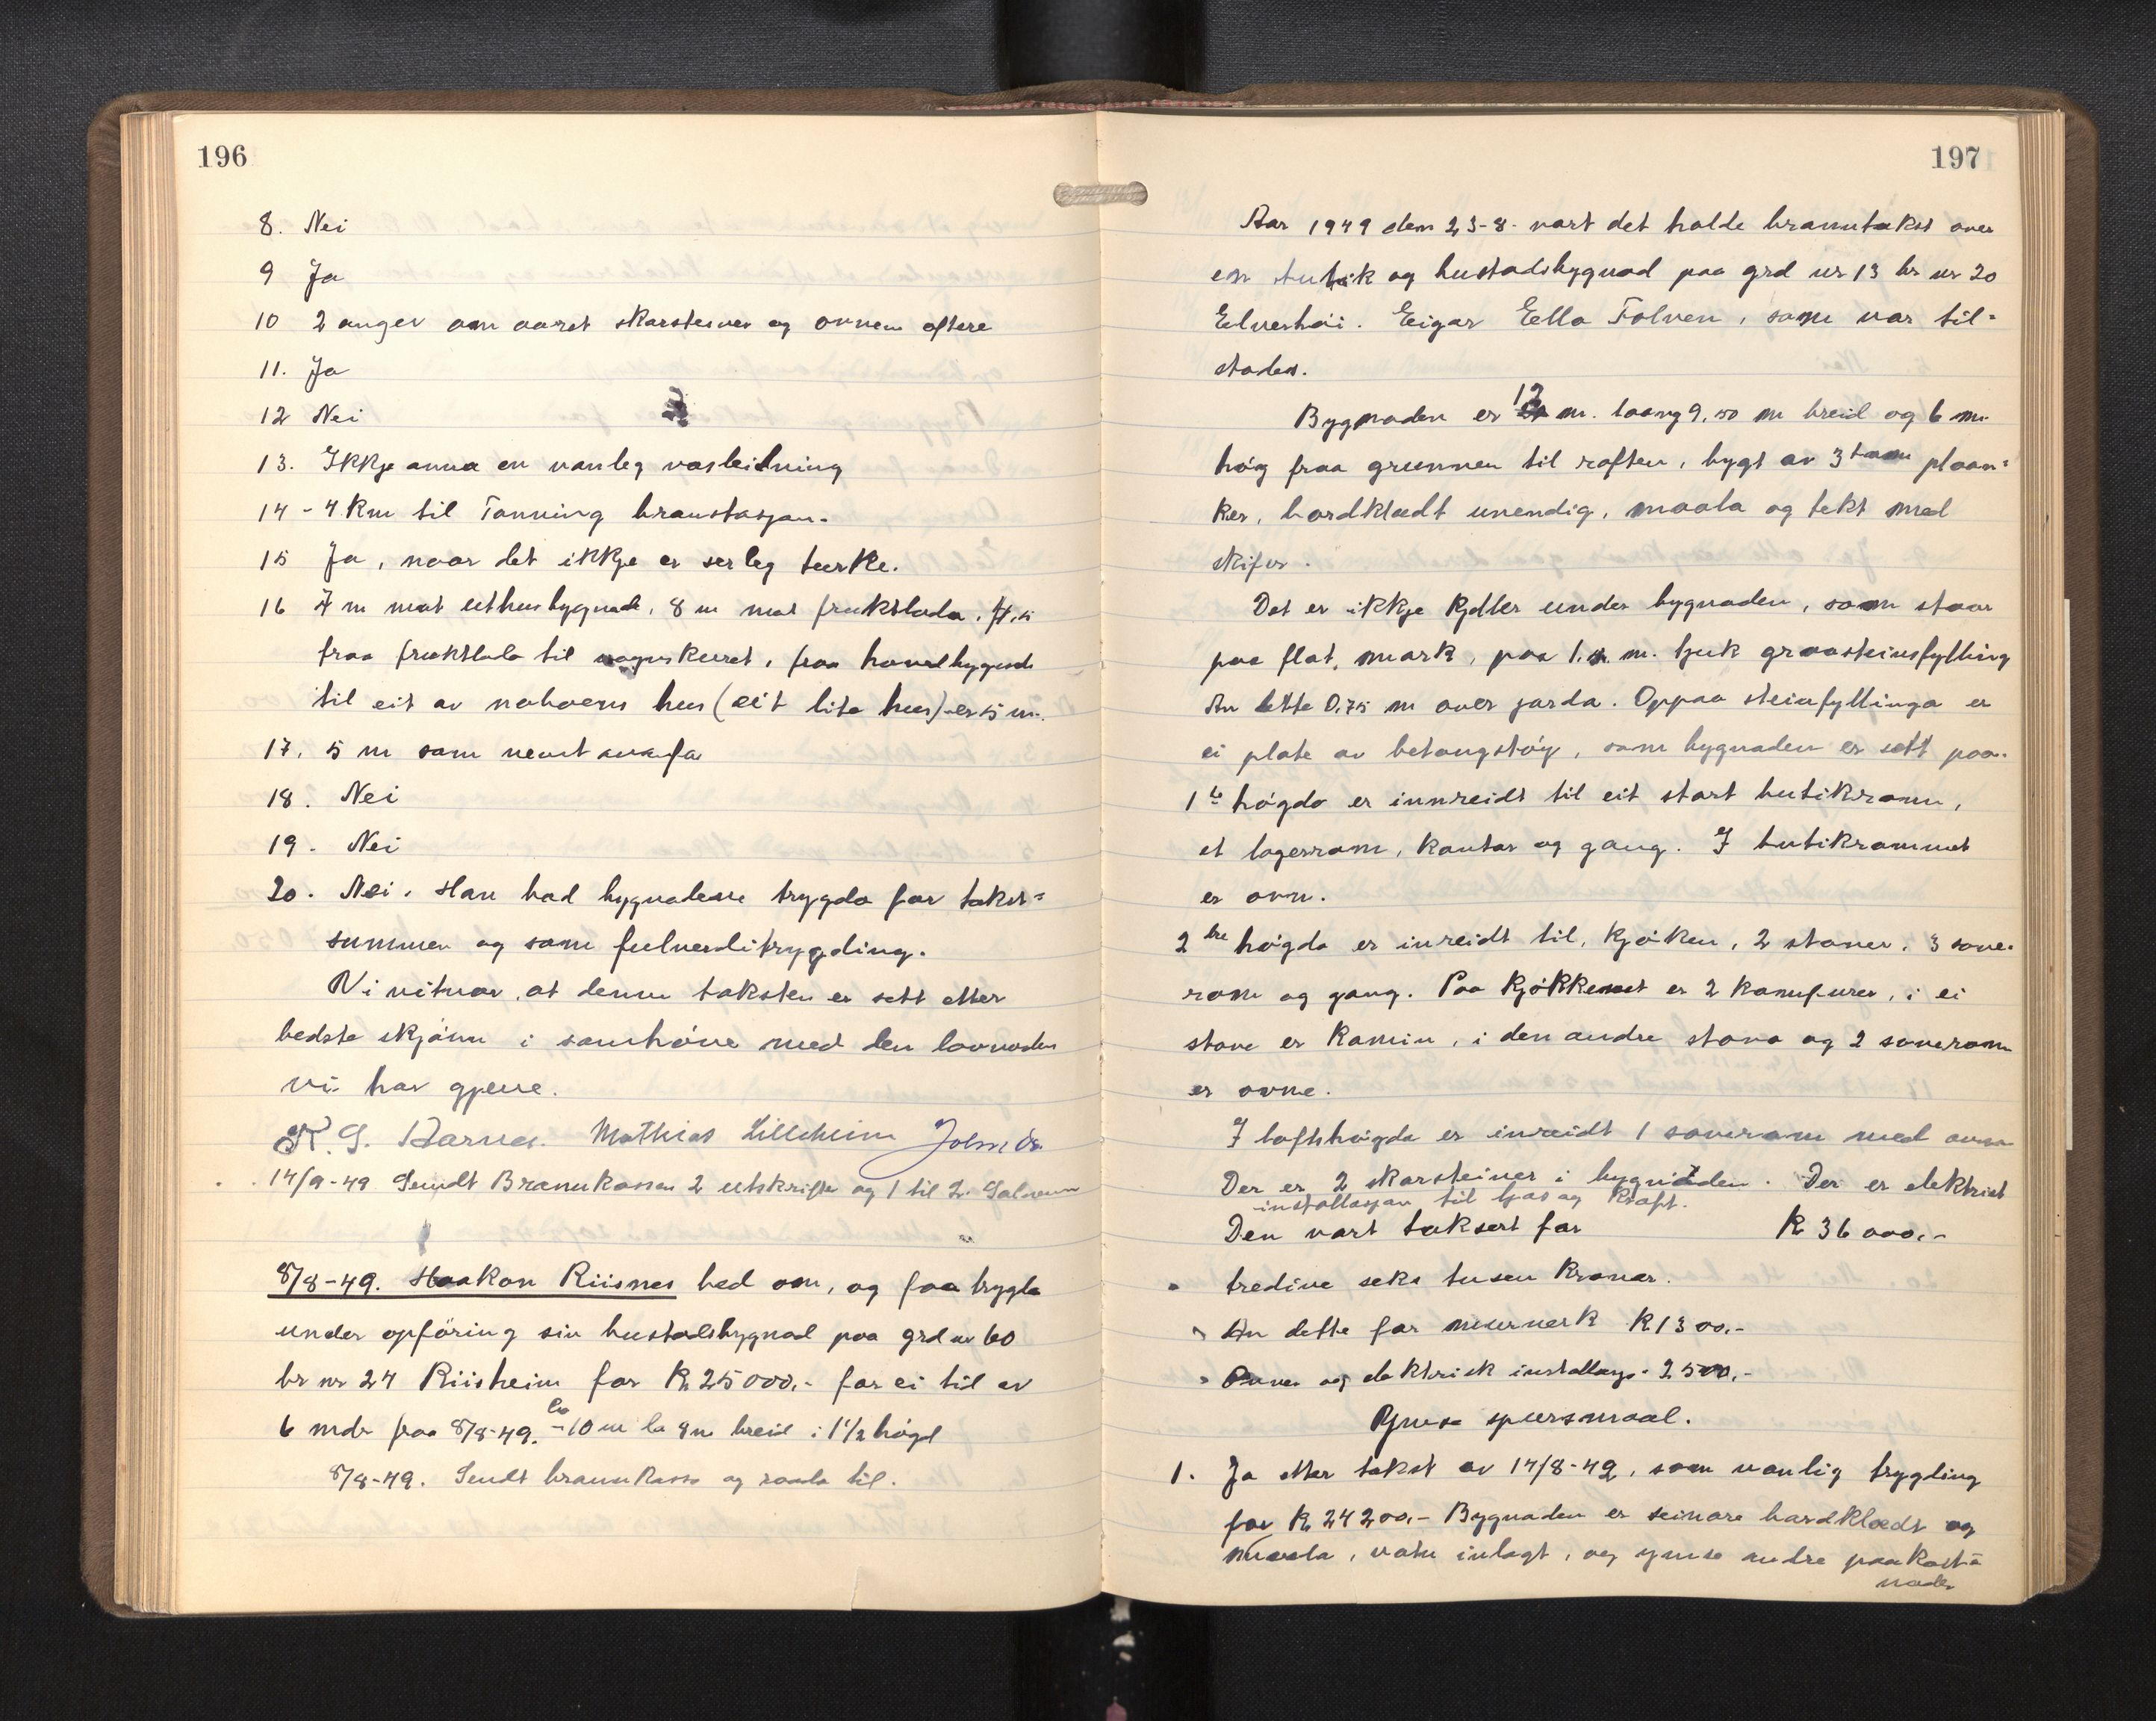 196
8. Nei
9 Ja
10 2 anger om aaret skarsteiner og ovnen oftere
11. Ja
12 Nei
13. Ikkje anna en vanleg vasleidning
14 - 4 Km til Tonning branstasjon.
15 Ja, naar det ikkje er serleg turke.
16 7 m mot uthusbygnad, 8 m mot fruktlada,
fraa fruktlada til vognskuret, fraa hovedbygnad
til eit av naboens hus (eit lite hus) er 5 m.
17. 5 m som nemt ovafor
18. Nei
19. Nei
20. Nei. Han bad bygnadene trygda for takst=
summen og som fulverditrygding.
Vi vitnar, at denne taksten er sett etter
bedste skjönn i samhöve med den lovnaden
vi har gjeve.
Mathias Lilleheim
14/9-49 Sendt Brannkassen 2 utskrifter og 1 til
8/8-49. Haakon Riisnes bad om, og faa trygda
under opföring sin hustadsbygnad paa grd nr 60
br nr 24 Riisheim for Kr 25000,- for ei tid av
6 mdr fraa 8/8-49. - 10 m la 8 m breid i 1 1/2 högd
8/8-49. Sendt brannkassa og raada til.
197
Aar 1949 den 23-8- vart det halde branntakst over
en butik og hustadsbygnad paa grd nr 13 br nr 20
Elverhöi. Eigar Ella Tolven, som var til=
stades.
Bygnaden er 12 m. laang 9,50 m breid og 6 m.
hög fraa grunnen til raften, bygt av 3 tom plaan=
ker, bordklædt utvendig, maala og tekt med
skifer.
Det er ikkje kjeller under bygnaden, som staar
paa flat, mark, paa m. tjuk graasteinsfylling
Av dette 0,75 m over jorda. Oppaa steinfyllinga er
ei plate av betongstöyp, som bygnaden er sett paa.
1ste högda er innreidt til eit stort butikrom,
et lagerrom, kontor og gang. I butikrommet
er ovn.
2dre högda er inreidt til, kjöken, 2 stover, 3 sove-
rom og gang. Paa kjökkenet er 2 komfurer, i ei
stove er kamin, i den andre stova og 2 soverom
er ovne.
I loftshögda er inreidt 1 soverom med ovn
Der er 2 skorsteiner i bygnaden. Der er elektrist
installasjon til ljos og kraft.
Den vart taksert for Kr 36000,-
tredive seks tusen kroner.
Av dette for murverk Kr 1300,-
Ovner og elektrisk installasj. 2500,-
Ymse spursmaal.
1. Ja etter takst av 14/8-42, som vanlig trygding
for Kr 24200,- Bygnaden er seinare bordklædt og
maala, vatn inlagt, og ymse andre paakost=
nader